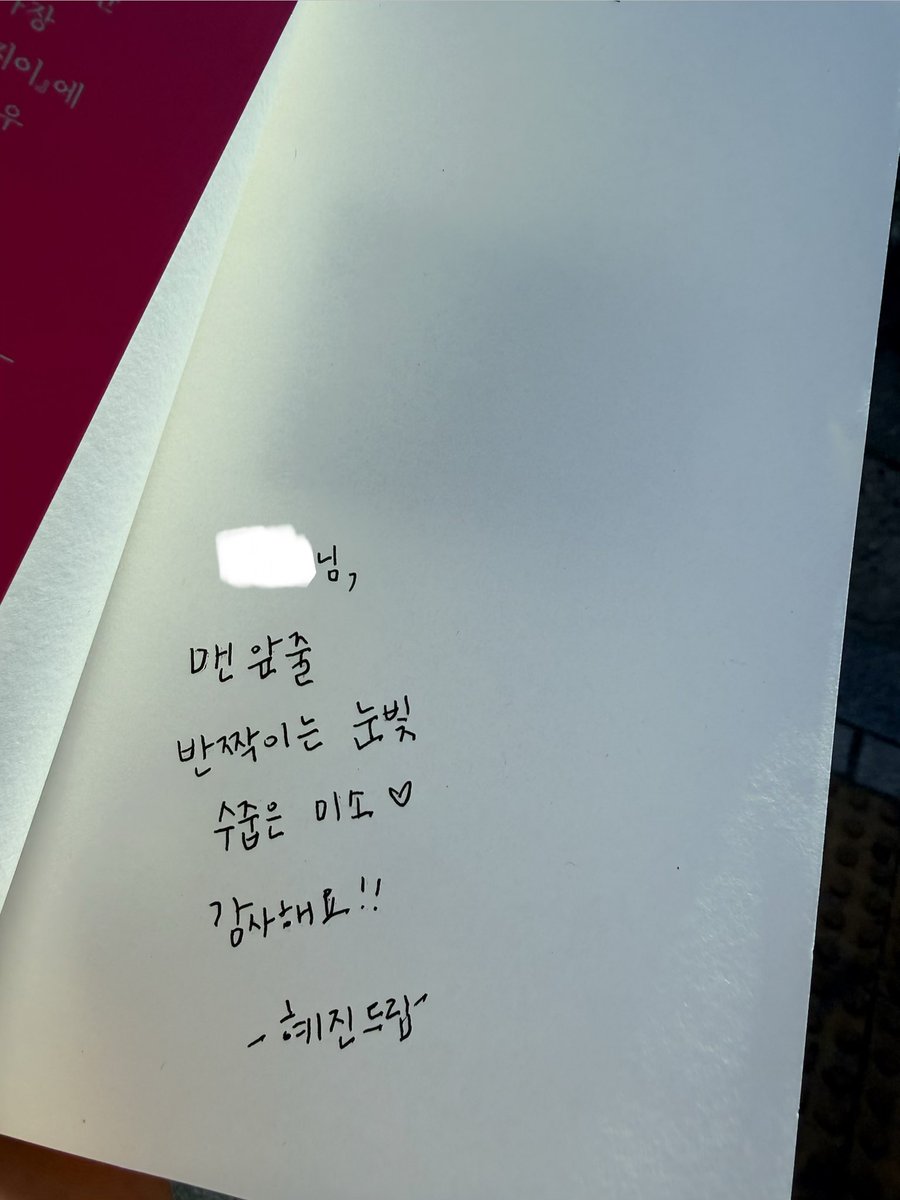 장
지이』에
우
님,
맨 앞줄
반짝이는 눈빛
수줍은 미소♡
감사해요!!
- 혜진드림 -